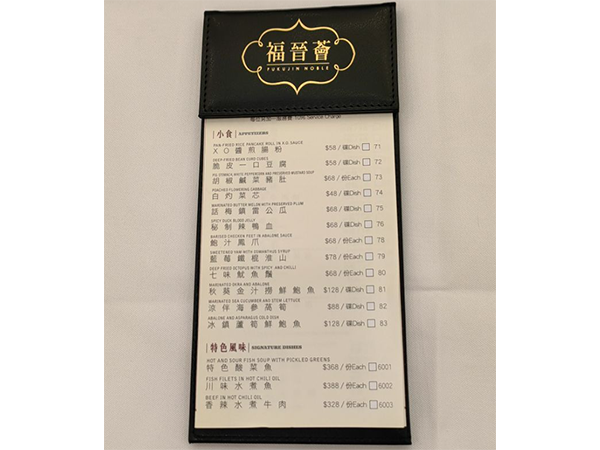 福晉薈
FUKUJIN NOBLE
10% Service Charge
小食 APPETIZERS
PAN-FRIED RICE PANCAKE ROLL IN X.O. SAUCE
XO醬煎腸粉 $58 / 碟Dish 71
DEEP FRIED BEAN CURD CUBES
脆皮一口豆腐 $58 / 碟Dish 72
WHITE PEPPERCORN AND PRESERVED MUSTARD SOUP
胡椒鹹菜豬肚 $68 / 份Each 73
POACHED FLOWERING CABBAGE
白灼菜芯 $48 / 碟Dish 74
MARINATED BITTER MELON WITH PRESERVED PLUM
話梅鎮當瓜 $68 / 碟Dish 75
SPICY DUCK BLOOD JELLY
秘制辣鴨血 $68 / 碟Dish 76
BRAISED CHICKEN FEET IN ABALONE SAUCE
鮑汁鳳爪 $68 / 份Each 78
SWEETENED YAM WITH OSMANTHUS SYRUP
藍莓鐵棍淮山 $78 / 份Each 79
DEEP FRIED OCTOPUS WITH SPICY AND CHILLI
七味魷魚鬚 $68 / 份Each 80
MARINATED OKRA AND ABALONE
秋葵金汁撈鮮鮑魚 $128 / 碟Dish 81
MARINATED SEA CUCUMBER AND STEM LETTUCE
涼伴海參萵筍 $88 / 碟Dish 82
ABALONE AND ASPARAGUS COLD DISH
冰鎮蘆筍鮮鮑魚 $128 / 碟Dish 83
特色風味 SIGNATURE DISHES
HOT AND SOUR FISH SOUP WITH PICKLED GREENS
特色酸菜魚 $368 / 份Each 6001
FISH FILETS IN HOT CHILI OIL
川味水煮魚 $388 / 份Each 6002
BEEF IN HOT CHILI OIL
香辣水煮牛肉 $328 / 份Each 6003